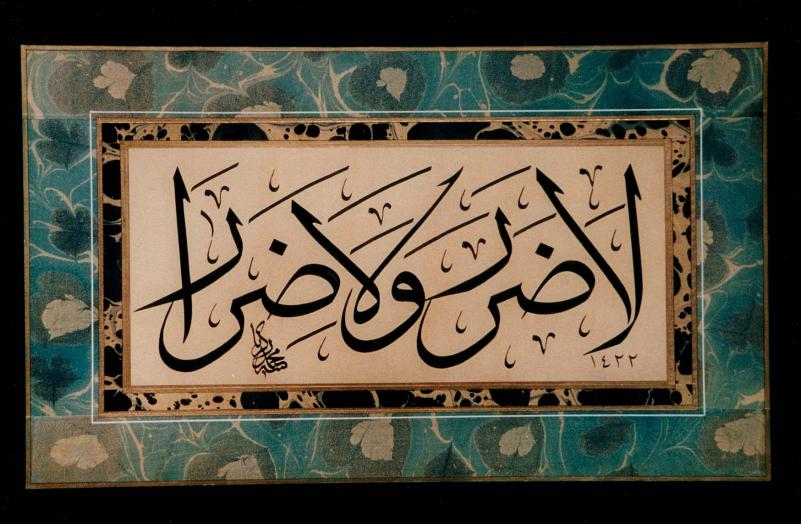 لا ضرر ولا ضرار
١٤٢٢